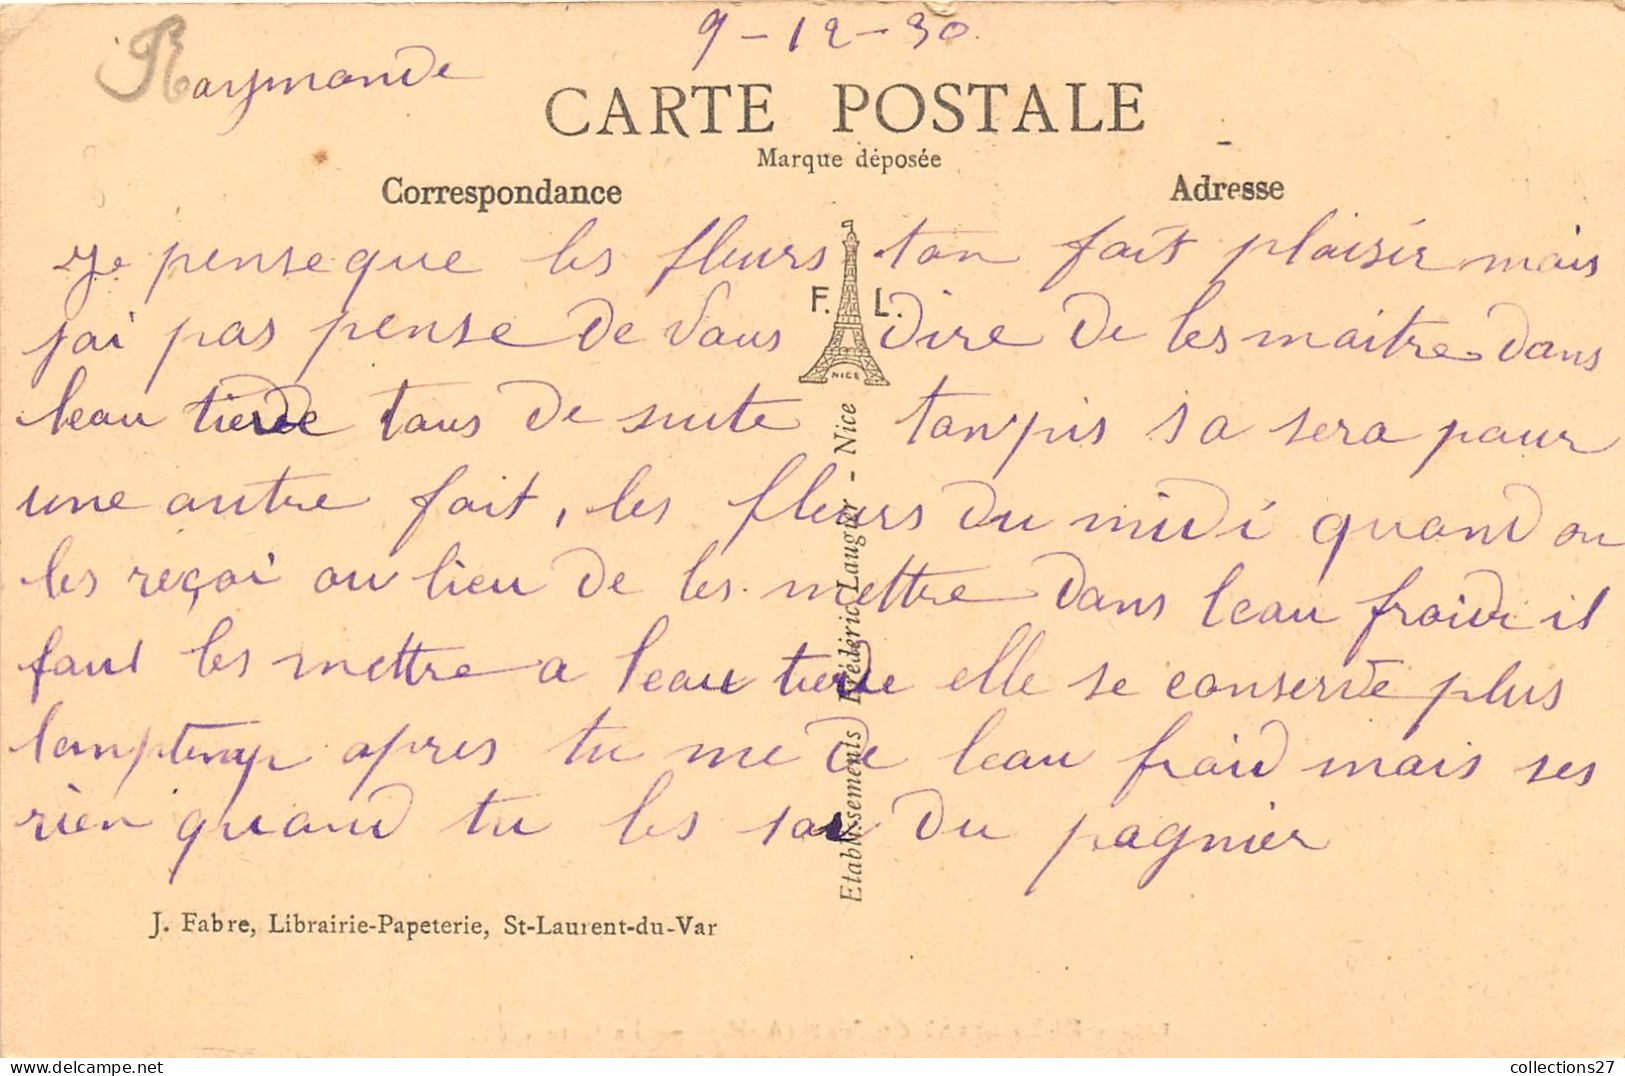 9-12-30
Raymonde
CARTE POSTALE
Marque déposée
Correspondance
Adresse
Je pense que les fleurs ton fait plaisir mais
jai pas pense de vous dire de les maitre dans
leau tierde tous de suite tanpis sa sera pour
une autre fait, les fleurs du midi quand on
les reçoi au lieu de les mettre dans leau froide il
faut les mettre a leau tierde elle se conserve plus
lomptemp apres tu me de leau froid mais ses
rien quand tu les sor du pagnier
F. L.
NICE
Etablissements Frédéric Laugier - Nice
J. Fabre, Librairie-Papeterie, St-Laurent-du-Var
collections27